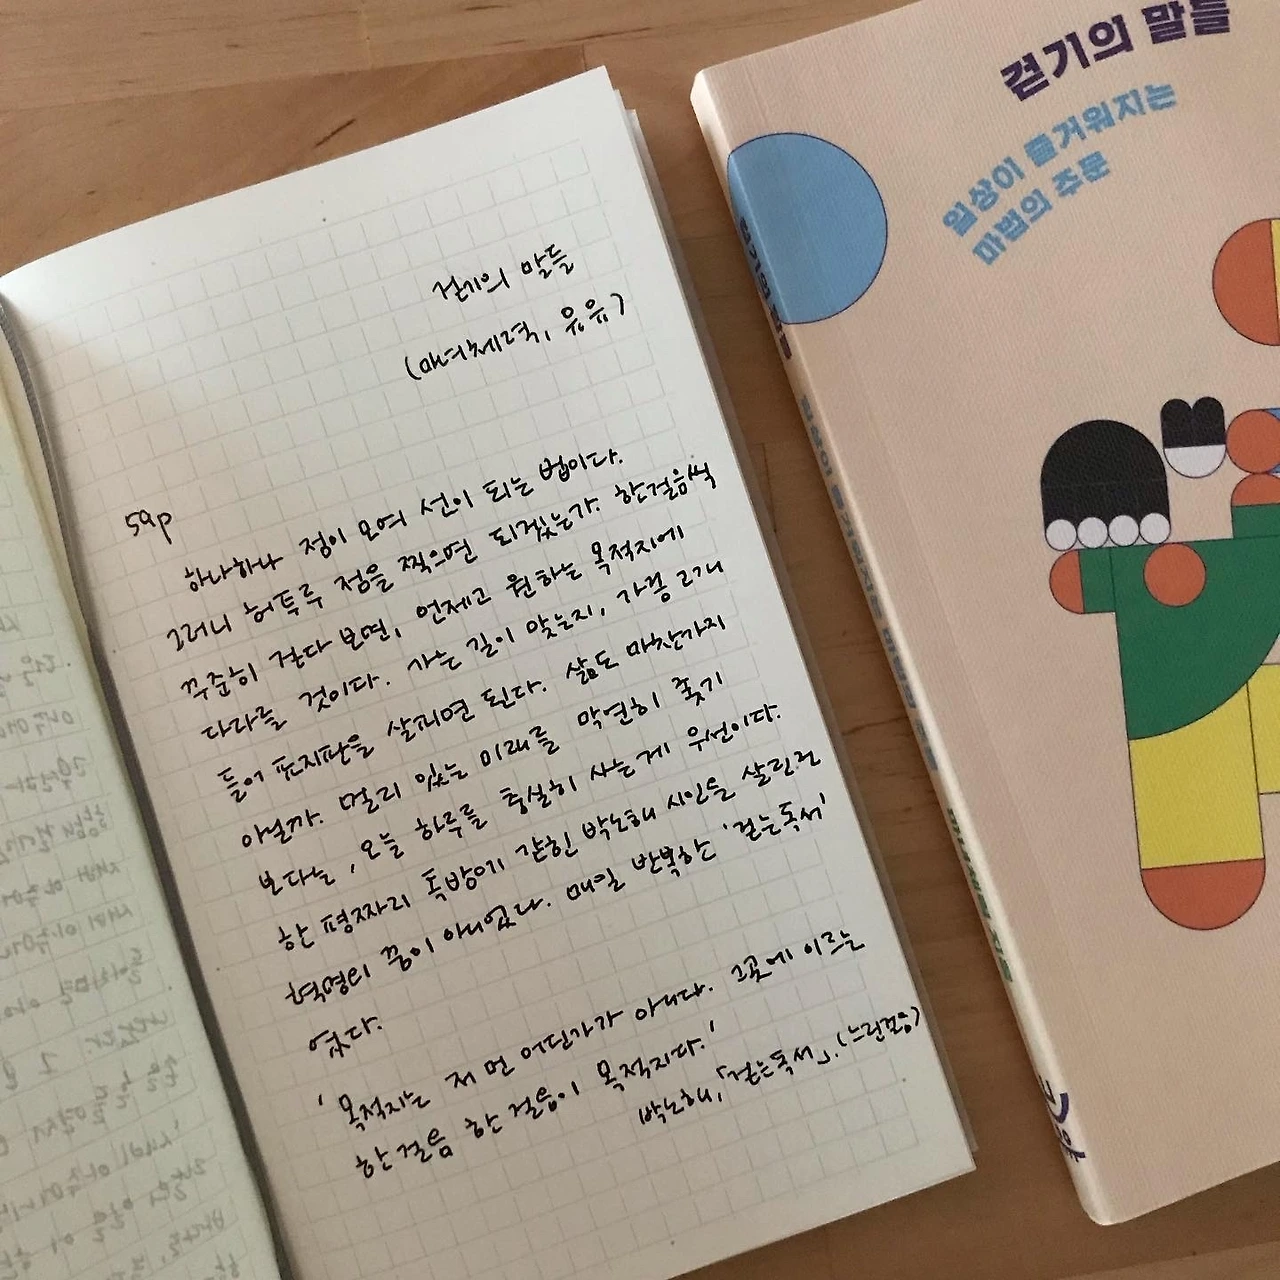 걷기의 말들
(마녀체력, 유유)
59p
하나하나 점이 모여 선이 되는 법이다.
그러니 허투루 점을 찍으면 되겠는가. 한걸음씩
꾸준히 걷다 보면, 언제고 원하는 목적지에
다다를 것이다. 가는 길이 맞는지, 가끔 고개
들어 표지판을 살피면 된다. 삶도 마찬가지
아닐까. 멀리 있는 미래를 막연히 좇기
보다는, 오늘 하루를 충실히 사는게 우선이다.
한 평짜리 독방에 갇힌 박노해 시인을 살린건
혁명의 꿈이 아니었다. 매일 반복한 '걷는독서'
였다.
'목적지는 저 먼 어딘가가 아니다. 그곳에 이르는
한 걸음 한 걸음이 목적지다.'
박노해, 「걷는독서」. (느린걸음)
걷기의 말들
일상이 즐거워지는
마법의 주문
걷기의 말들
일상이 즐거워지는 마법의 주문
마녀체력 지음